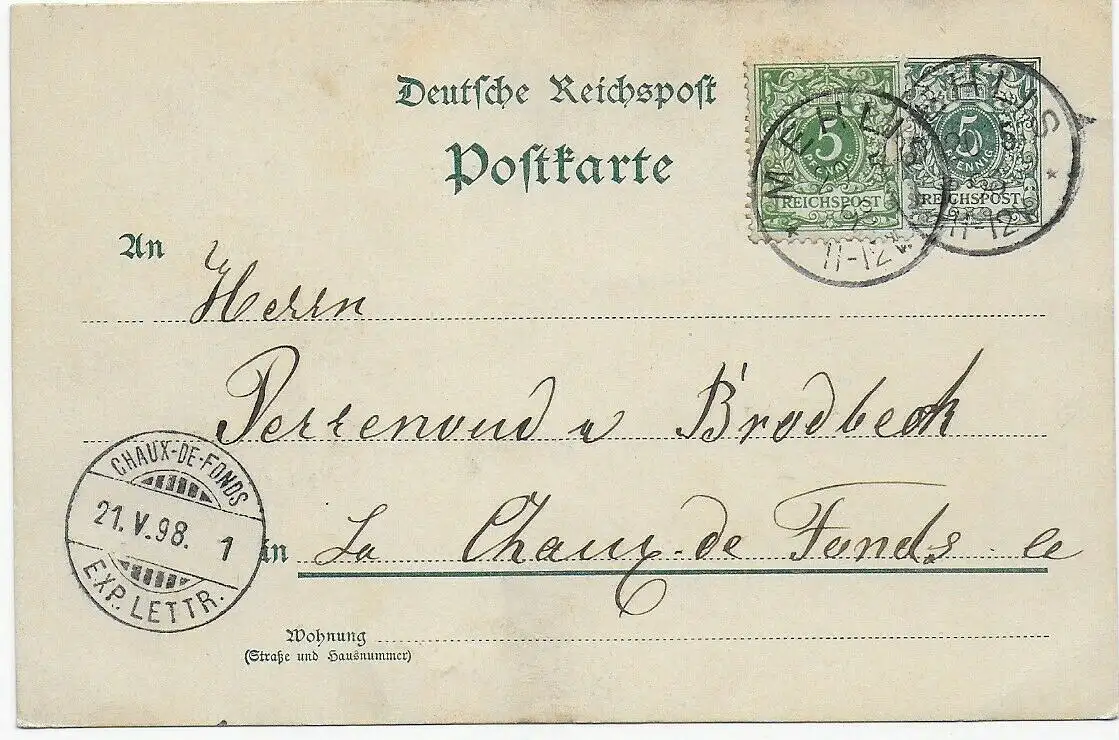 Deutsche Reichspost
Postkarte
5
PFENNIG
REICHSPOST
5
PFENNIG
REICHSPOST
MEHLIS
11-12V.
MEHLIS
11-12V.
An Herrn
Perrenoud u Brodbeck
in La Chaux-de Fonds
CHAUX-DE-FONDS
21.V.98. 1
EXP. LETTR.
Wohnung
(Straße und Hausnummer)